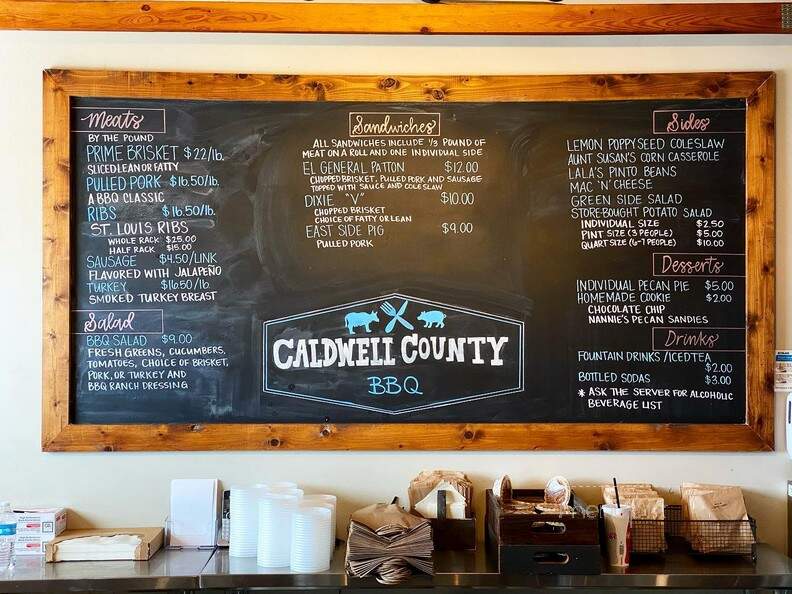 Meats
BY THE POUND
PRIME BRISKET $22/lb.
SLICED LEAN OR FATTY
PULLED PORK $16.50/lb.
A BBQ CLASSIC
RIBS $16.50/lb.
ST. LOUIS RIBS
WHOLE RACK $25.00
HALF RACK $15.00
SAUSAGE $4.50/LINK
FLAVORED WITH JALAPEÑO
TURKEY $16.50/lb.
SMOKED TURKEY BREAST
Salad
BBQ SALAD $9.00
FRESH GREENS, CUCUMBERS,
TOMATOES, CHOICE OF BRISKET,
PORK, OR TURKEY AND
BBQ RANCH DRESSING
Sandwiches
ALL SANDWICHES INCLUDE 1/3 POUND OF
MEAT ON A ROLL AND ONE INDIVIDUAL SIDE
EL GENERAL PATTON $12.00
CHOPPED BRISKET, PULLED PORK AND SAUSAGE
TOPPED WITH SAUCE AND COLESLAW
DIXIE "V" $10.00
CHOPPED BRISKET
CHOICE OF FATTY OR LEAN
EAST SIDE PIG $9.00
PULLED PORK
CALDWELL COUNTY
BBQ
Sides
LEMON POPPYSEED COLESLAW
AUNT SUSAN'S CORN CASSEROLE
LALA'S PINTO BEANS
MAC 'N' CHEESE
GREEN SIDE SALAD
STORE-BOUGHT POTATO SALAD
INDIVIDUAL SIZE $2.50
PINT SIZE (3 PEOPLE) $5.00
QUART SIZE (6-7 PEOPLE) $10.00
Desserts
INDIVIDUAL PECAN PIE $5.00
HOMEMADE COOKIE $2.00
CHOCOLATE CHIP
NANNIE'S PECAN SANDIES
Drinks
FOUNTAIN DRINKS / ICED TEA
$2.00
BOTTLED SODAS $3.00
* ASK THE SERVER FOR ALCOHOLIC
BEVERAGE LIST